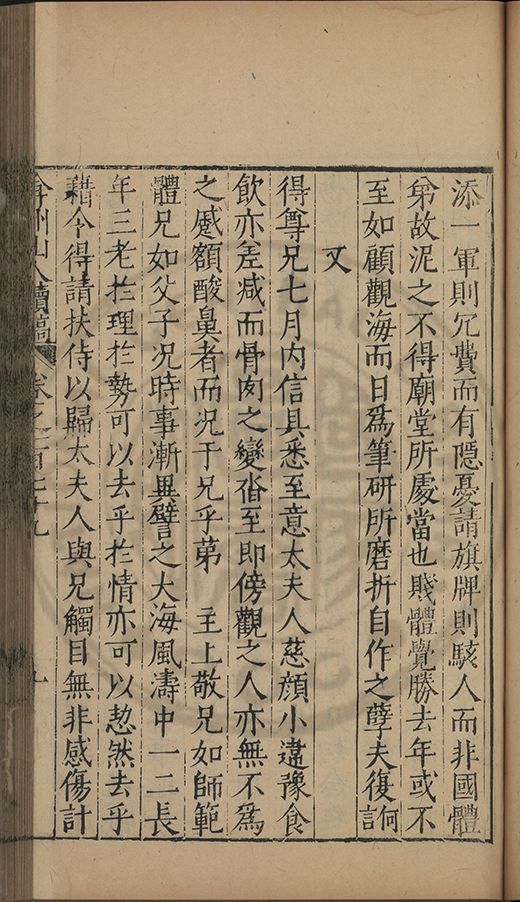 添一軍則冗費而有隱憂請旗牌則駭人而非國體
弟故泥之不得廟堂所處當也賤體覺勝去年或不
至如顧觀海而日爲筆研所磨折自作之孽夫復訶
又
得尊兄七月內信具悉至意太夫人慈顔小違豫食
飲亦差減而骨肉之變沓至即傍觀之人亦無不爲
之蹙額酸鼻者而况于兄乎苐　主上敬兄如師範
體兄如父子况時事漸異譬之大海風濤中一二長
年三老扵理扵勢可以去乎扵情亦可以恝然去乎
藉令得請扶侍以歸太夫人與兄觸目無非感傷計
弇州山人續稿 卷之一百七十九 九